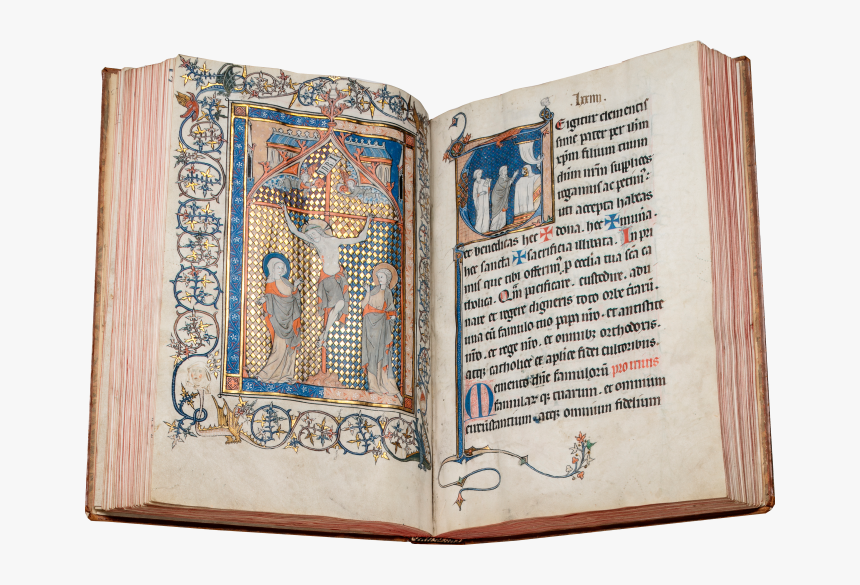 lxxiii
Te igitur clementis
sime pater per ihm
xpm filium tuum
dnm nrm supplices
rogamus ac petim
uti accepta habeas
et benedicas hec ✠ dona. hec ✠ munia.
hec sancta ✠ sacrificia illibata. In pri
mis que tibi offerim p ecclia tua sca ca
tholica. Qm pacificare. custodire. adu
nare et regere digneris toto orbe trarū.
una cū famulo tuo papa nro. et antistite
nro. et rege nro. et omnibz orthodoxis.
atqz catholice et aplice fidei cultoribus.
Memento dne famulorū pro uiuis
famularūqz tuarum. et omnium
circūstantium atqz omnium fidelium